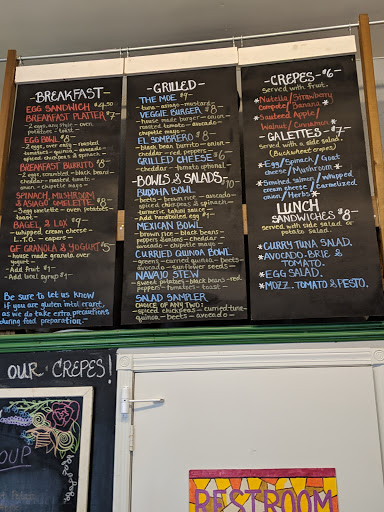 BREAKFAST
EGG SANDWICH $4.50
BREAKFAST PLATTER $7
- 2 eggs, any style - oven
potatoes - toast -
EGG BOWL $8
- 2 eggs, over easy - roasted
tomatoes - quinoa -
spiced chickpeas & spinach -
BREAKFAST BURRITO $8
- 2 eggs, scrambled - black beans
cheddar - roasted tomato -
onion - chipotle mayo -
SPINACH, MUSHROOM
& ASIAGO OMELETTE $8
- 3 egg omelette - oven potatoes
toast -
BAGEL & LOX $9
- whipped cream cheese
L.T.O. - capers -
GF GRANOLA & YOGURT $5
- house made granola over
yogurt -
Add fruit $1 -
Add local syrup $1 -
Be sure to let us know
if you are gluten intolerant,
as we do take extra precautions
during food preparation
GRILLED
THE MOE $7
- tuna - asiago - mustard -
VEGGIE BURGER $8
- house made burger - onion -
roasted tomato - avocado -
chipotle mayo -
EL SOMBRERO $8
- black bean burrito - onion -
cheddar - red peppers -
GRILLED CHEESE $6
- cheddar - tomato optional -
BOWLS & SALADS $10
BUDDHA BOWL
- beets - brown rice - avocado -
spiced chickpeas & spinach -
turmeric tahini sauce -
Add hardboiled egg $1 -
MEXICAN BOWL
- brown rice - black beans -
peppers & onions - cheddar -
avocado - chipotle mayo -
CURRIED QUINOA BOWL
- greens - curried quinoa - beets -
avocado - sunflower seeds -
NAVAJO STEW
- sweet potatoes - black beans - red
peppers - tomatoes - toast -
SALAD SAMPLER
CHOICE OF ANY TWO:
- spiced chickpeas - curried tuna
quinoa - beets - avocado -
CREPES $6
served with fruit.
* Nutella/Strawberry
Compote/Banana *
* Sauteed Apple/
Walnut/Cinnamon *
GALETTES $7
served with a side salad.
(Buckwheat crepes)
* Egg/Spinach/Goat
cheese/Mushroom *
* Smoked salmon/whipped
cream cheese/Caramelized
onion/Herbs *
LUNCH
SANDWICHES $8
served with side salad or
potato salad.
* CURRY TUNA SALAD.
* AVOCADO, BRIE &
TOMATO.
* EGG SALAD.
* MOZZ, TOMATO & PESTO.
OUR CREPES!
OUP
RESTROOM